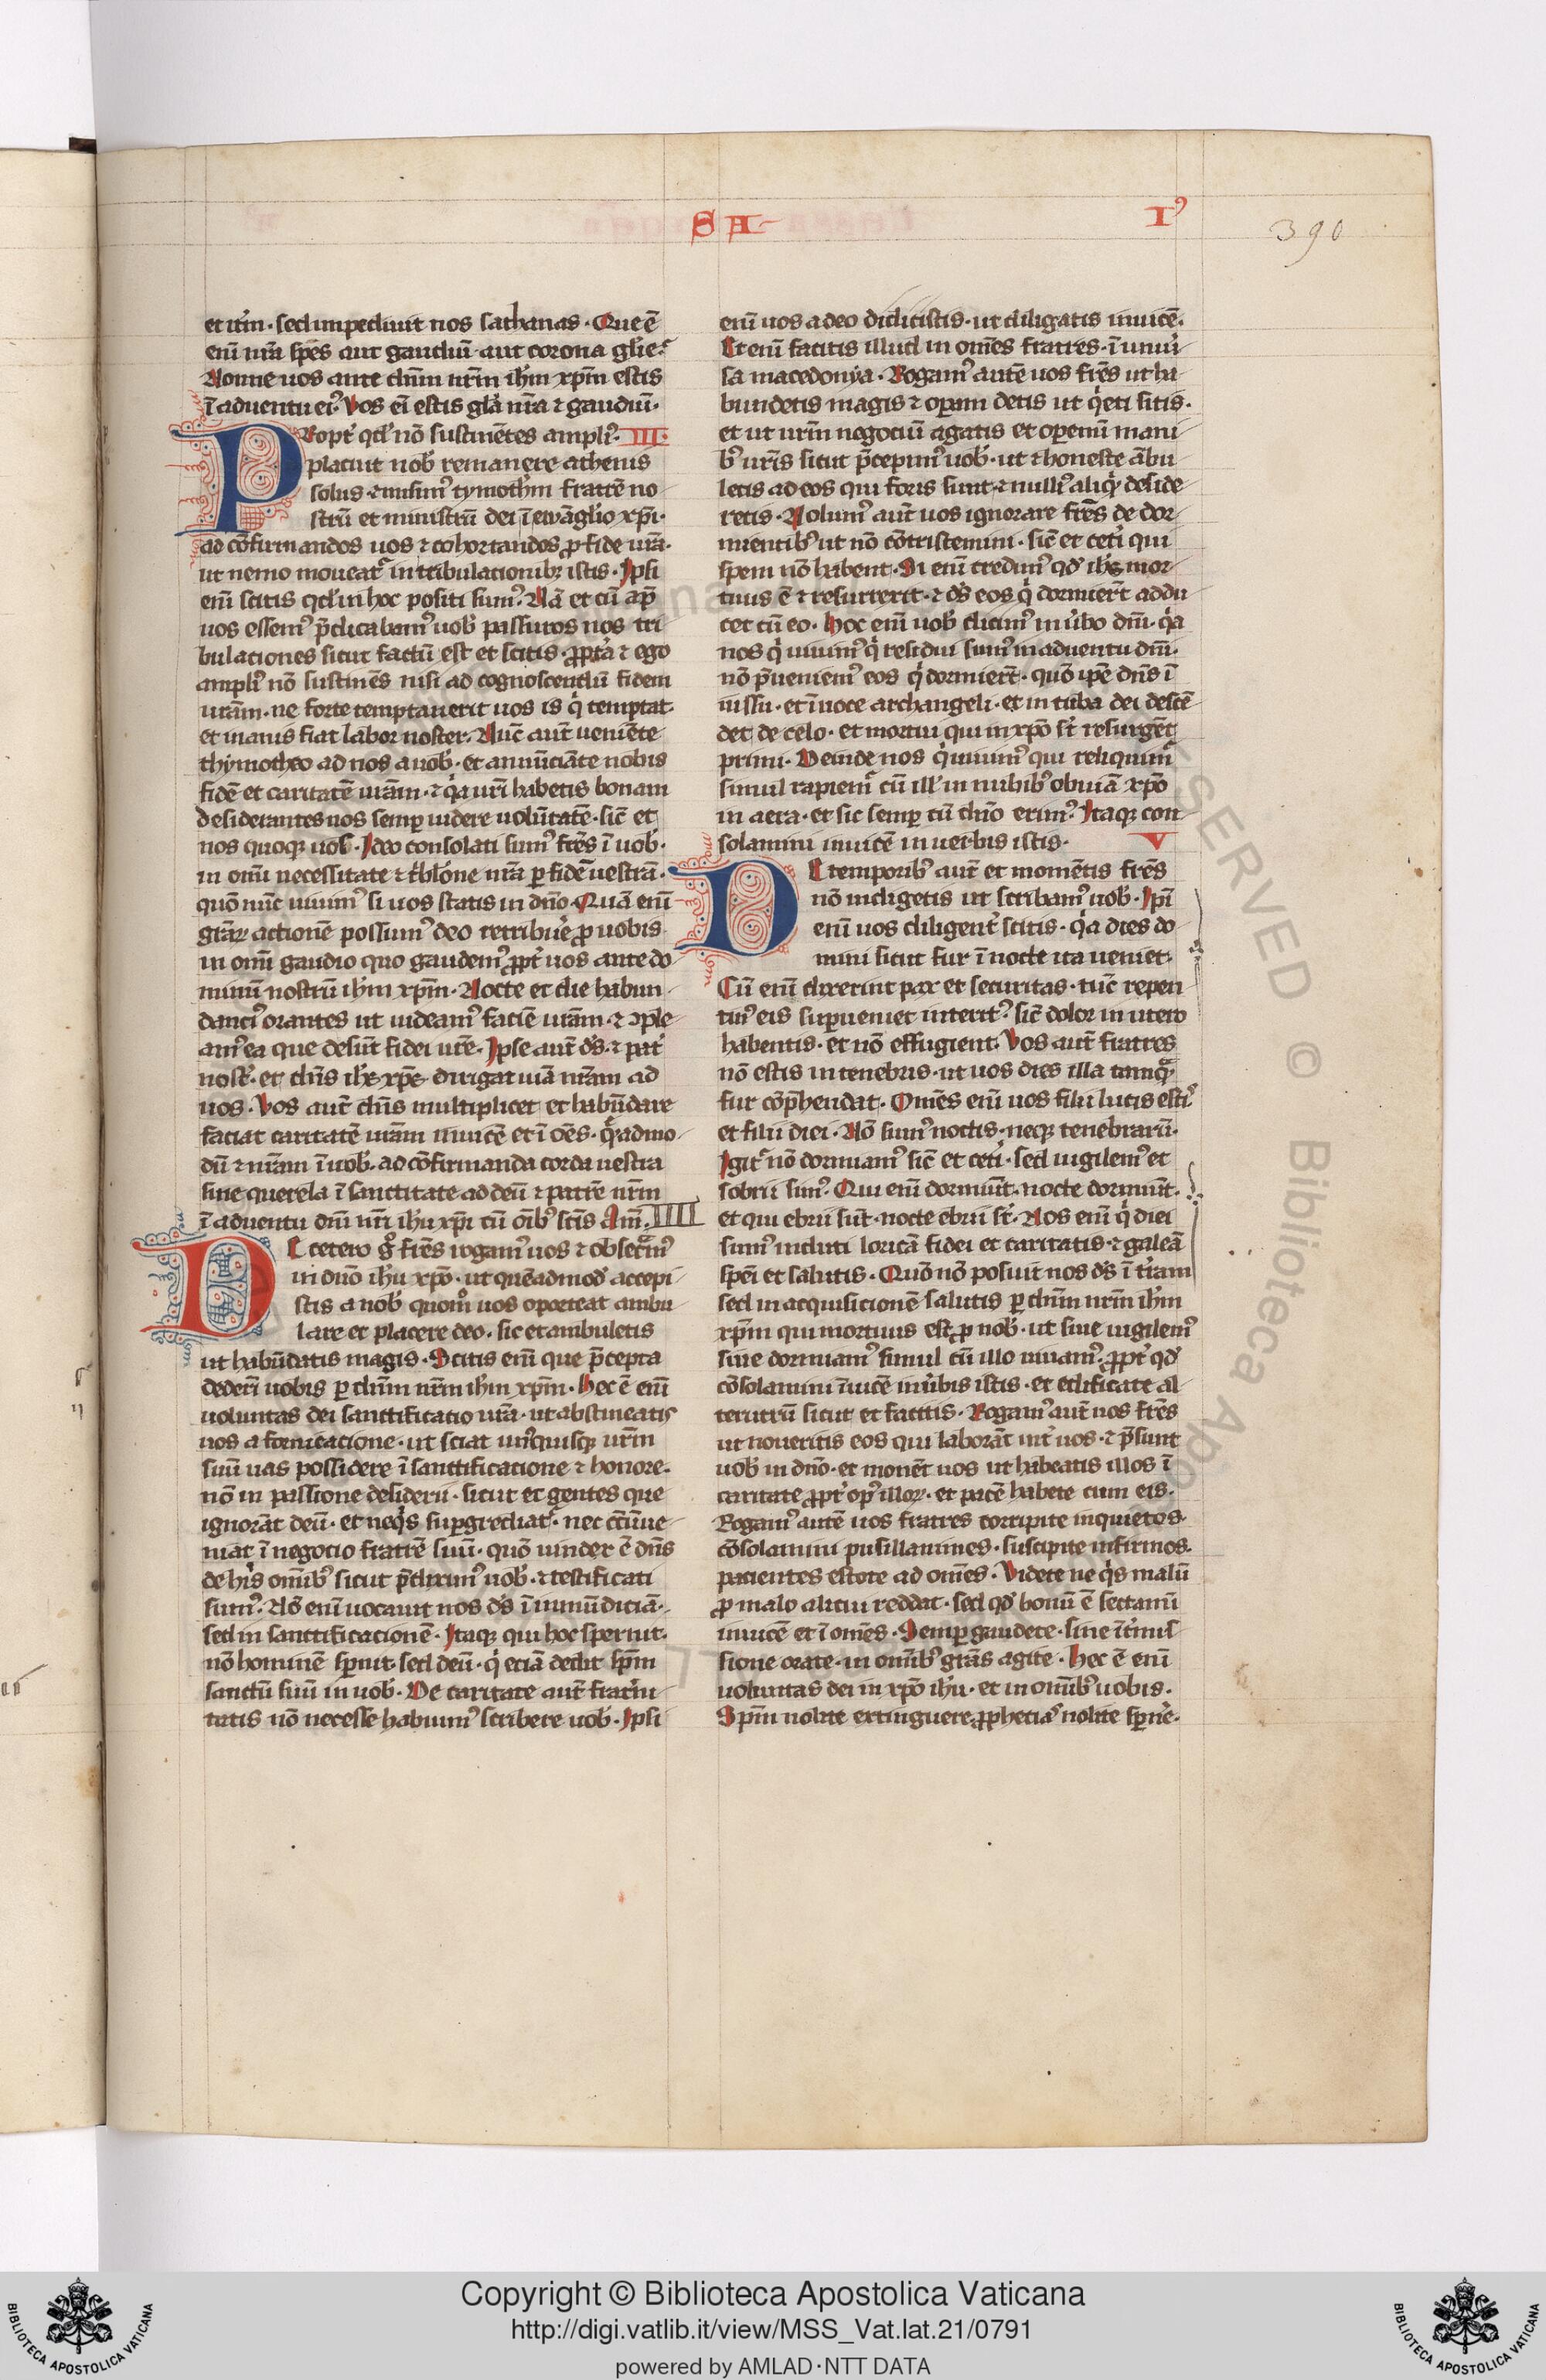 SA
I⁹
390
et itm̄ · sed impediuit nos sathanas · Que ē
eni᷈ nr̄a spēs aut gaudiū · aut corona glīe ·
Nonne uos ante dn̄m nr̄m ih̄m xp̄m estis
ī aduentu ei⁹ · Vos ei᷈ estis glā nr̄a ⁊ gaudiū ·
PRopt̄ qd̓ nō sustinētes ampli⁹ · III ·
placuit nob̓ remanere athenis
solus · ⁊ misim⁹ tymothm̄ fratrē no
strū et ministrū dei ī ewāglio xp̄i ·
ad cōfirmandos uos ⁊ cohortandos ꝓ fide ur̄a ·
ut nemo moueat᷑ in tribulationibꝫ istis · Ipsi
eni᷈ scitis qd̓ in hoc positi sum⁹ · Nā et cū ap̄
uos essem⁹ p̄dicabam⁹ uob̓ passuros nos tri
bulationes sicut factū est et scitis · ꝓpt̓a ⁊ ego
ampli⁹ nō sustinēs misi ad cognoscendū fidem
ur̄am · ne forte temptauerit uos is q̓ temptat
et inanis fiat labor noster · Nūc aut̄ ueniēte
thymotheo ad nos a uob̓ · et annūciāte nobis
fidē et caritatē ur̄am · ⁊ q̓a nr̄i habetis bonam
desiderantes nos semꝑ uidere uolūtatē · sic̄ et
nos quoqꝫ uos · Ideo consolati sum⁹ fr̄es ī uob̓ ·
in om̄i necessitate ⁊ t̓bl̓one nr̄a ꝑ fidē uestrā ·
quō nūc uiuim⁹ si uos statis in dn̄o · Quā eni᷈
gr̄aꝝ actionē possum⁹ deo retribue̓ ꝓ uobis
in om̄i gaudio quo gaudem⁹ ꝓpt̓ uos ante do
minū nostrū ih̄m xp̄m · Nocte et die habun
danci⁹ orantes ut uideam⁹ faciē ur̄am · ⁊ ꝯple
am⁹ ea que desūt fidei ur̄e · Ipse aut̄ ds̄ · ⁊ pat̓
nost̓ · et dn̄s ih̄s xp̄s dirigat uiā nr̄am ad
uos · Vos aut̄ dn̄s multiplicet et habūdare
faciat caritatē ur̄am inuicē et ī oēs · qͣadmo
dū ⁊ nr̄am ī uob̓ · ad cōfirmanda corda uestra
sine querela ī sanctitate ad deū ⁊ patrē nr̄m
ī aduentu dn̄i nr̄i ih̄u xp̄i cū oīb⁹ sc̄is Am̄ · IIII
DE cetero gͦ fr̄es rogam⁹ uos ⁊ obsecͣm⁹
in dn̄o ih̄u xp̄o · ut quēadmod̓ accepi
stis a nob̓ quomͦ uos oporteat ambu
lare et placere deo · sic et ambuletis
ut habūdatis magis · Scitis eni᷈ que p̄cepta
dederī uobis ꝑ dn̄m nr̄m ih̄m xp̄m · Hec ē eni᷈
uoluntas dei sanctificatio ur̄a · ut abstineatis
uos a fornicacione · ut sciat un⁹quisqꝫ ur̄m
suū uas possidere ī sanctificatione ⁊ honore ·
nō in passione desiderii · sicut et gentes que
ignorāt deū · et neq̓s supgrediat᷑ · nec c̄cūue
niat ī negotio fratrē suū · quō uindex ē dn̄s
de his om̄ib⁹ sicut p̄dixim⁹ uob̓ · ⁊ testificati
sum⁹ · Nō eni᷈ uocauit nos ds̄ ī inmūdiciā ·
sed in sanctificationē · Itaqꝫ qui hoc spernit ·
nō hominē sp̄nit sed deū · q̓ eciā dedit sp̄m
sanctū suū in uob̓ · De caritate aut̄ frat̓ni
tatis nō necesse habuim⁹ scribere uob̓ · Ipsi
eni᷈ uos a deo didicistis · ut diligatis inuicē ·
Et eni᷈ facitis illud in om̄es fratres · ī uniu̓
sa macedonya · Rogam⁹ autē uos fr̄es ut ha
bundetis magis ⁊ oꝑam detis ut q̓eti sitis ·
et ut ur̄m negociū agatis et oꝑemi᷈ mani
b⁹ ur̄is sicut p̄cepim⁹ uob̓ · ut ⁊ honeste ābu
letis ad eos qui foris sunt · ⁊ nulli⁹ aliq̓ deside
retis · Nolum⁹ aut̄ uos ignorare fr̄es de dor
mientib⁹ ut nō cōtristemini · sic̄ et cet̓i qui
spem nō habent · Si eni᷈ credim⁹ qd̓ ih̄s mor
tuus ē ⁊ resurrexit · ⁊ ds̄ eos q̓ dormier̄t addu
cet cū eo · Hoc eni᷈ uob̓ dicim⁹ in u̓bo dn̄i · q̓a
nos q̓ uiuim⁹ q̓ residui sum⁹ in aduentu dn̄i ·
nō p̄ueniem⁹ eos q̓ dormier̄t · quō ip̄e dn̄s ī
iussu · et ī uoce archangeli · et in tuba dei descē
det de celo · et mortui qui in xp̄o st̄ resurgēt
primi · Deinde nos q̓ uiuim⁹ qui relinquim᷑
simul rapiem᷑ cū ill̓ in nubib⁹ obuiā xp̄o
in aera · et sic semꝑ cū dn̄o erim⁹ · Itaqꝫ con
solamini inuicē in uerbis istis · V
DE temporib⁹ aut̄ et momētis fr̄es
nō indigetis ut scribam⁹ uob̓ · Ip̄i
eni᷈ uos diligent̓ scitis · q̓a dies do
mini sicut fur ī nocte ita ueniet ·
Cū eni᷈ dixerint pax et securitas · tūc repen
tin⁹ eis suꝑueniet interit⁹ · sic̄ dolor in utero
habentis · et nō effugient · Vos aut̄ fratres
nō estis in tenebris · ut uos dies illa tamqͣ
fur cōp̄hendat · Om̄es eni᷈ uos filii lucis esti⁹
et filii diei · Nō sum⁹ noctis · neqꝫ tenebrarū ·
Igit᷑ nō dormiam⁹ sic̄ et cet̓i · sed uigilem⁹ et
sobrii sim⁹ · Qui eni᷈ dormiūt · nocte dormiūt ·
et qui ebrii sūt · nocte ebrii st̄ · Nos eni᷈ q̓ diei
sum⁹ induti loricā fidei et caritatis · ⁊ galeā
spēi et salutis · Quō nō posuit nos ds̄ ī iram
sed in acquisicionē salutis ꝑ dn̄m nr̄m ih̄m
xp̄m qui mortuus est ꝓ nob̓ · ut siue uigilem⁹
siue dormiam⁹ simul cū illo uiuam⁹ · ꝓpt̓ qd̓
cōsolamini īuicē in u̓bis istis · et edificate al
terutrū sicut et facitis · Rogam⁹ aut̄ uos fr̄es
ut noueritis eos qui laborāt int̓ uos · ⁊ p̄sunt
uob̓ in dn̄o · et monēt uos ut habeatis illos ī
caritate ꝓpt̓ op⁹ illoꝝ · et pacē habete cum eis ·
Rogam⁹ autē uos fratres corripite inquietos ·
cōsolamini pusillanimes · suscipite infirmos ·
pacientes estote ad om̄es · Videte ne q̓s malū
ꝓ malo alicui reddat · sed qd̓ bonū ē sectami᷈
inuicē et ī om̄es · Semꝑ gaudete · sine īt̓mis
sione orate · in om̄ib⁹ gr̄as agite · Hec ē eni᷈
uoluntas dei in xp̄o ih̄u · et in om̄ib⁹ uobis ·
Spm̄ nolite extinguere ꝓphetias nolite sꝑne̓ ·
Copyright © Biblioteca Apostolica Vaticana
http://digi.vatlib.it/view/MSS_Vat.lat.21/0791
powered by AMLAD·NTT DATA
BIBLIOTECA APOSTOLICA VATICANA
BIBLIOTECA APOSTOLICA VATICANA